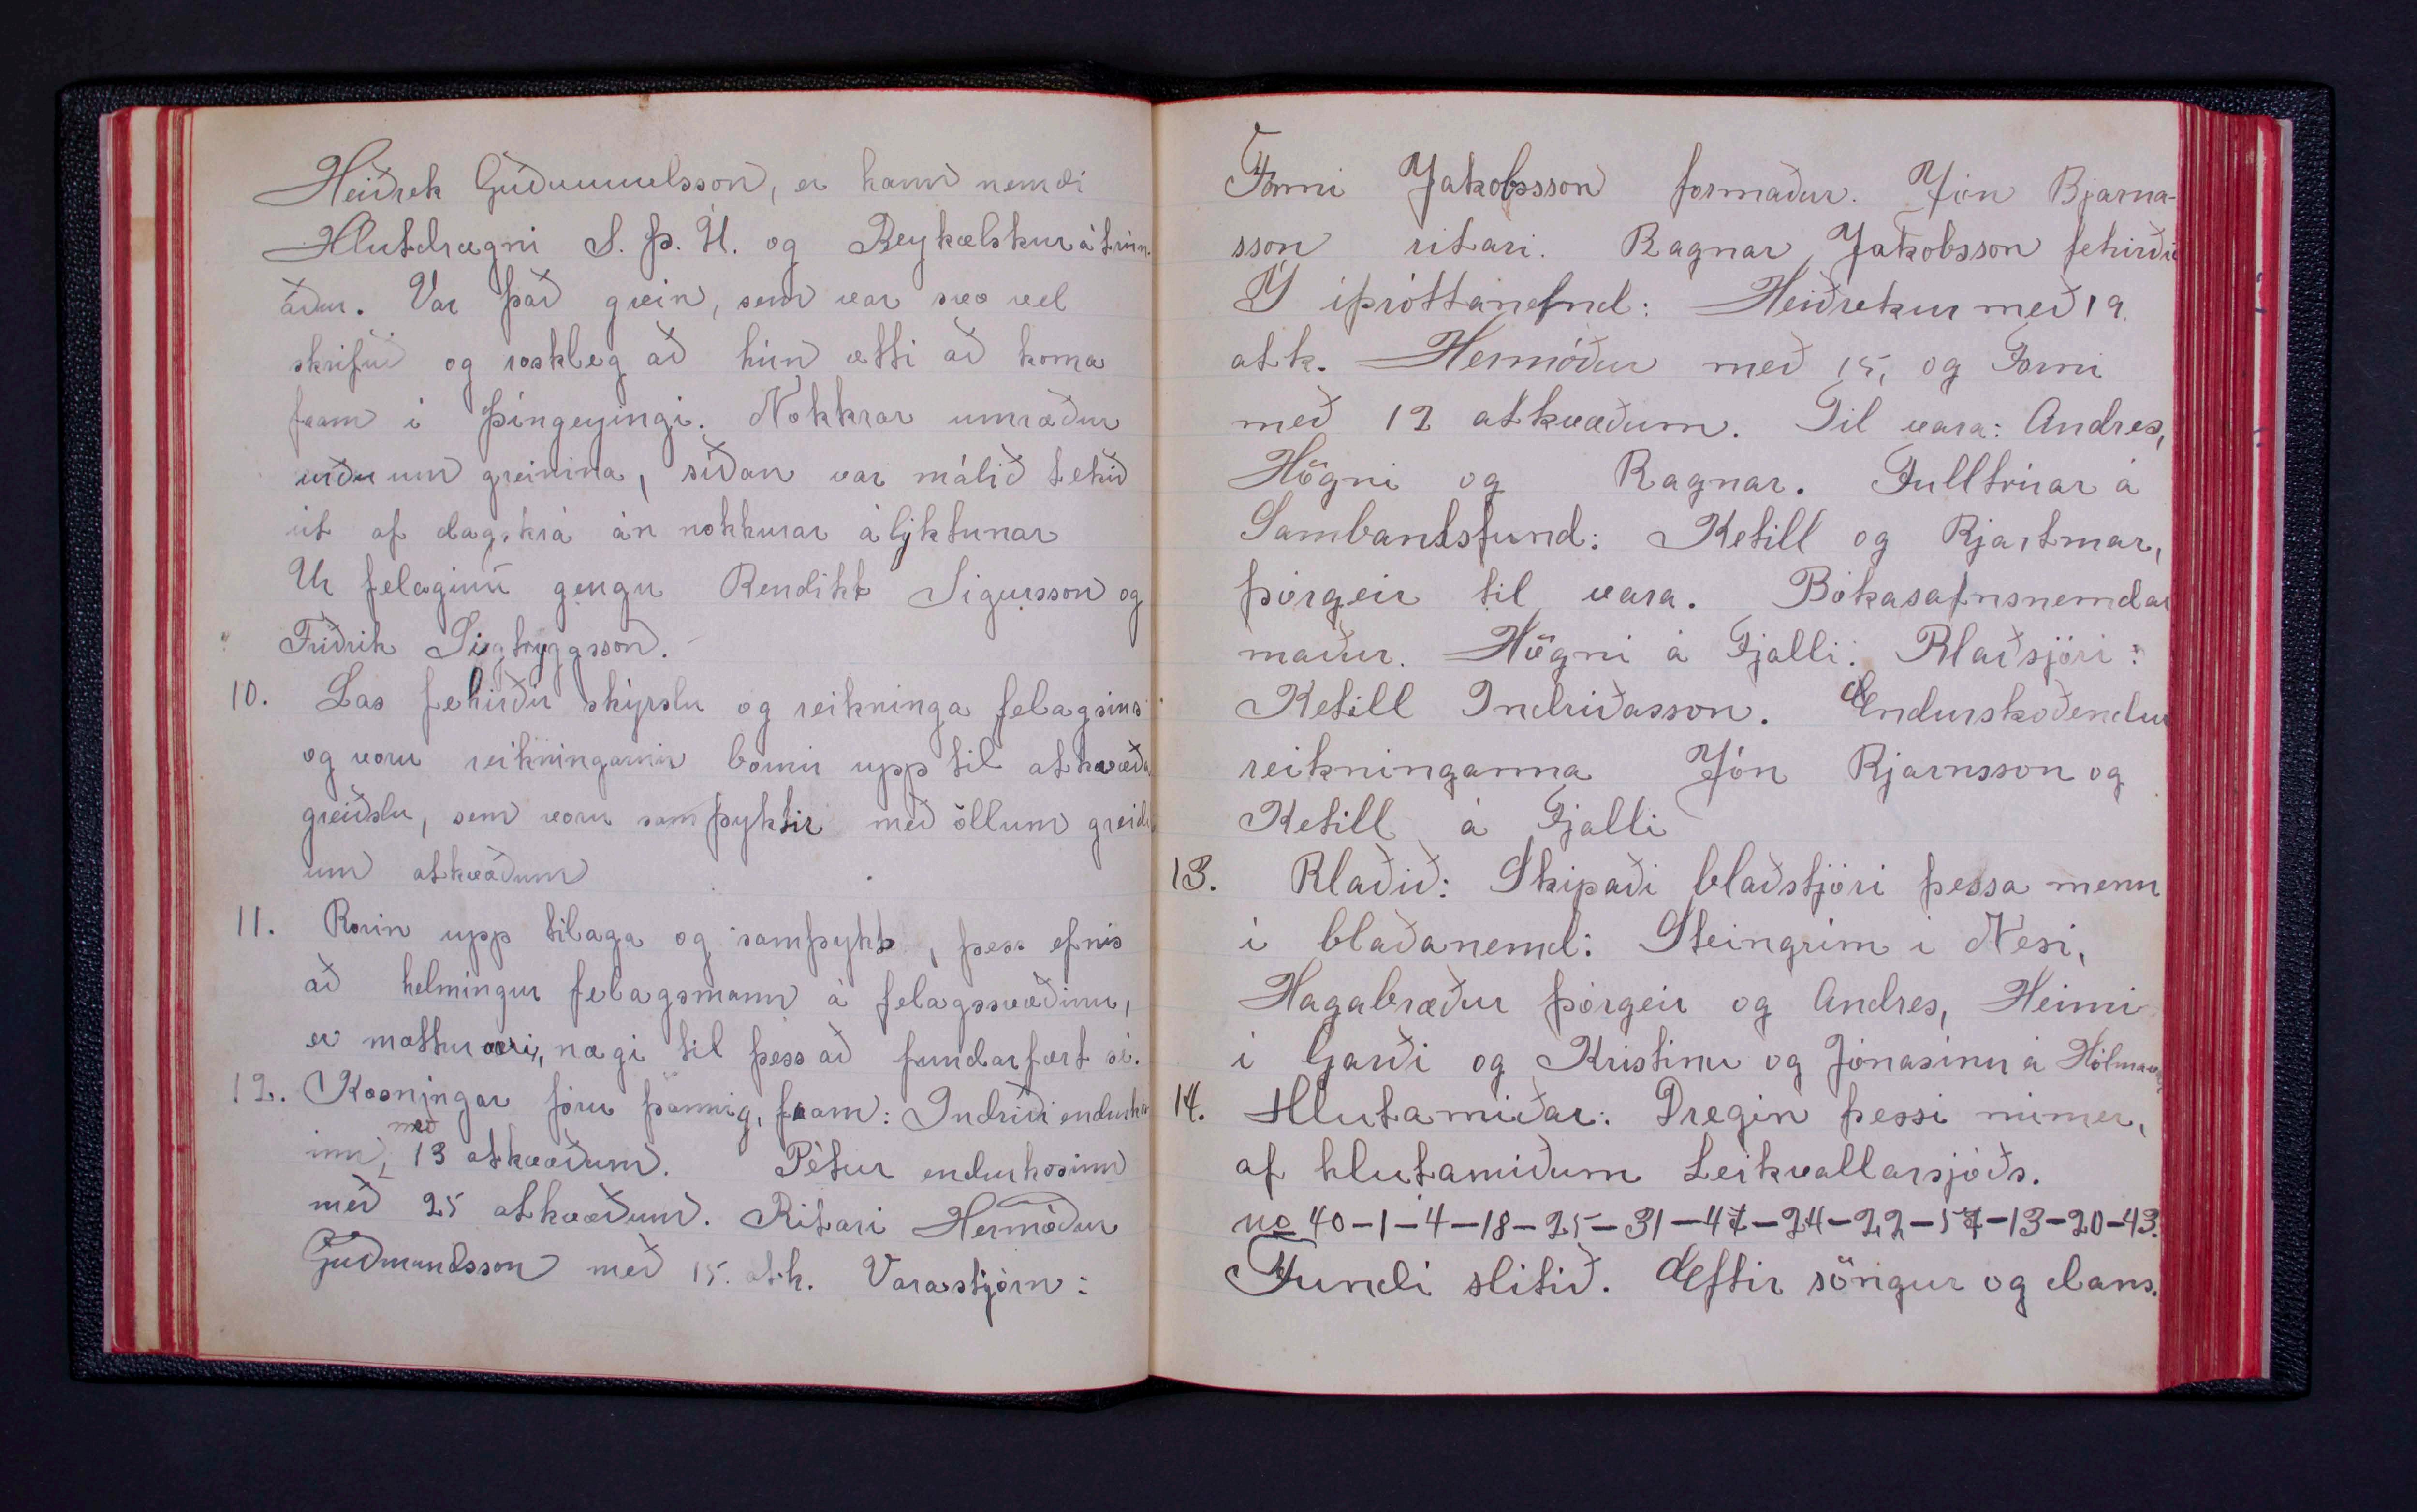 Heiðrek Guðmundsson, er hann nemdi
Hlutdrægni S. Þ. U. og Reykælskur átrún-
aður. Var það grein, sem var svo vel
skrifuð og roskleg að hún ætti að koma
fram í Þingeyingi. Nokkrar umræður
urðu um greinina, síðan var málið tekið
út af dagskrá án nokkurar ályktunar
Úr felaginu gengu Bendikt Sigursson og
Friðrik Sigtryggsson.
10. Las fehirðir skýrslu og reikninga felagsins
og voru reikningarnir bornir upp til atkvæða
greiðslu, sem voru samþyktir með öllum greidd
um atkvæðum
11. Borin upp tilaga og samþykt, þess efnis
að helmingur felagsmann á felagssvæðinu,
er mættur væri, nægi til þess að fundarfært sé.
12. Kosningar fóru þannig, fram: Indriði endurkos
inn, með 13 atkvæðum. Pétur endurkosinn
með 25 atkvæðum. Ritari Hermóður
Guðmundsson með 15. atk. Varastjórn:
Forni Jakobsson formaður. Jón Bjarna-
sson ritari. Ragnar Jakobsson fehirði
Í íþróttanefnd: Heiðrekur með 19.
atk. Hermóður með 15, og Forni
með 12 atkvæðum. Til vara: Andres,
Högni og Ragnar. Fulltrúar á
Sambantsfund: Ketill og Bjartmar,
Þórgeir til vara. Bókasafnsnemdar
maður. Högni á Fjalli. Blaðsjóri:
Ketill Indriðasson. Endurskoðendur
reikninganna Jón Bjarnsson og
Ketill á Fjalli
13. Blaðið: Skipaði blaðstjóri þessa menn
í blaðanemd: Steingrím í Nesi,
Hagabræður Þórgeir og Andres, Heimi
í Garði og Kristinu og Jónasínu á Hólmavað
14. Hlutamiðar: Dregin þessi númer,
af hlutamiðum Leikvallarsjóðs.
no 40-1-4-18-25-31-47-24-22-57-13-20-43.
Fundi slitið. Eftir söngur og dans.